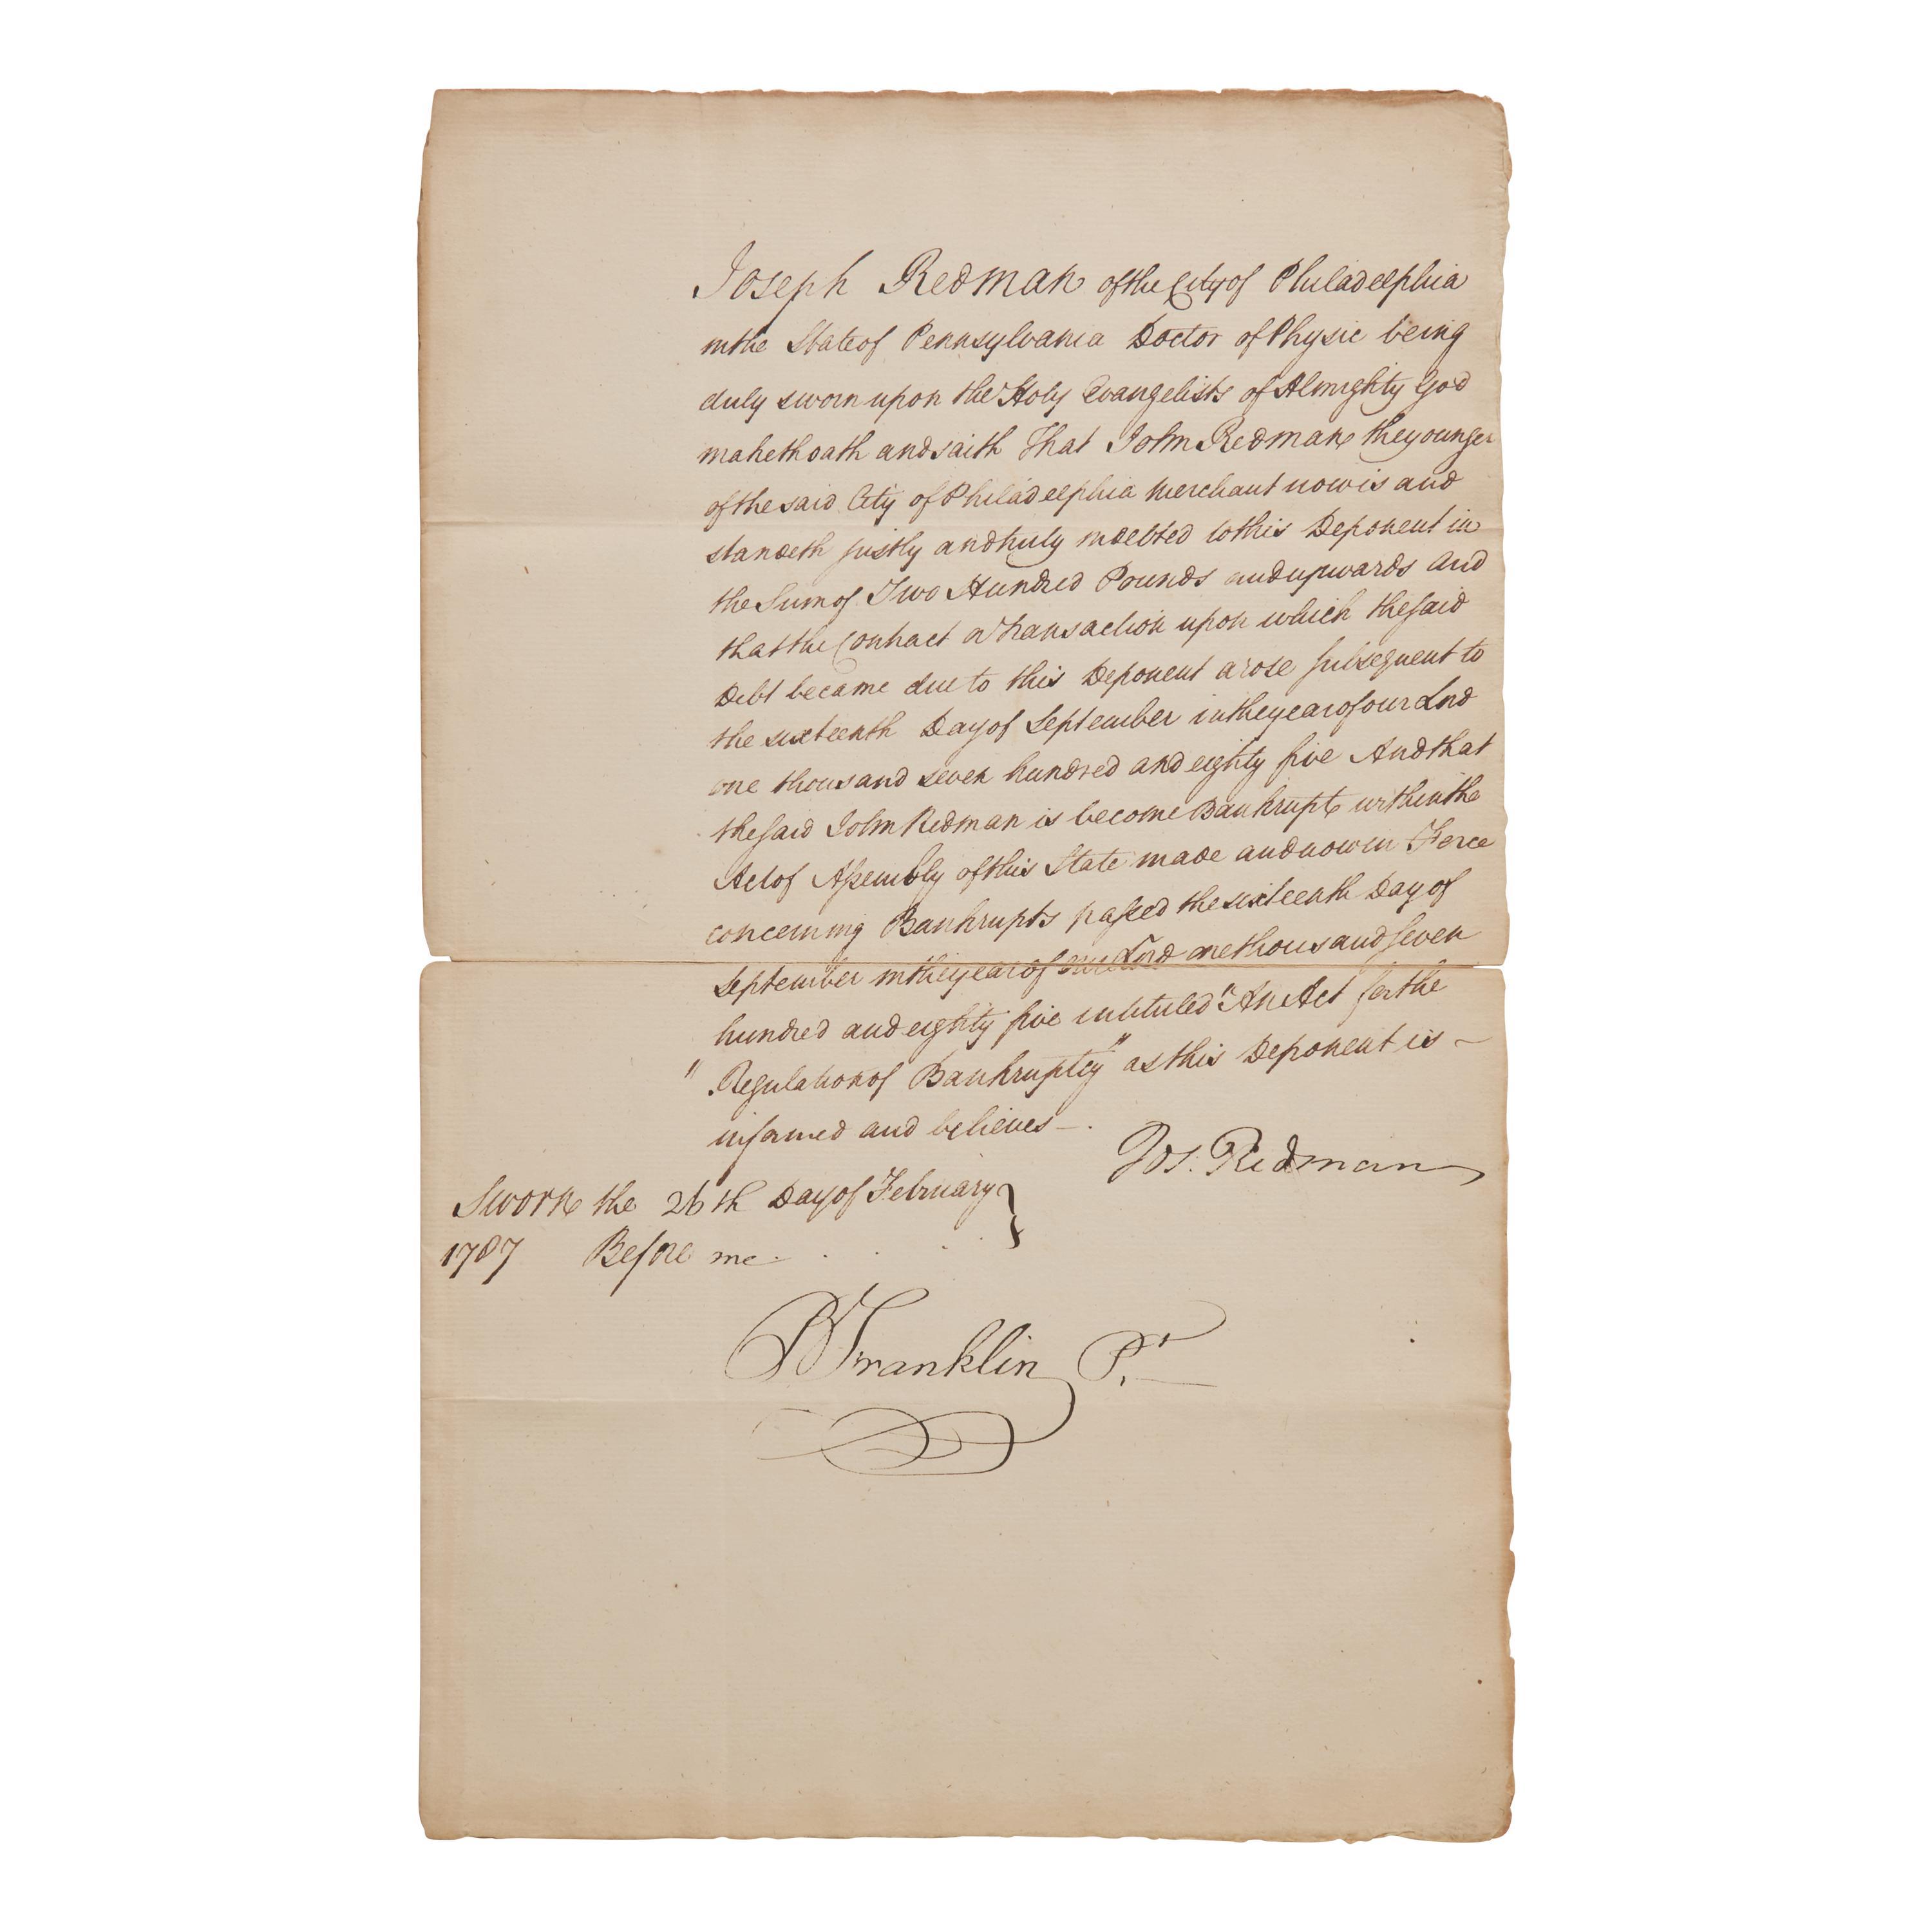 Joseph Redman of the City of Philadelphia
in the State of Pennsylvania Doctor of Physic being
duly sworn upon the Holy Evangelists of Almighty God
maketh oath and saith That John Redman the younger
of the said City of Philadelphia Merchant now is and
standeth justly and truly indebted to this Deponent in
the Sum of Two Hundred Pounds and upwards And
that the Contract or Transaction upon which the said
Debt became due to this Deponent arose subsequent to
the sixteenth Day of September in the year of our Lord
one thousand seven hundred and eighty five And that
the said John Redman is become Bankrupt within the
Act of Assembly of this State made and now in Force
concerning Bankrupts passed the sixteenth Day of
September in the year of our Lord one thousand seven
hundred and eighty five intituled "An Act for the
" Regulation of Bankruptcy" as this Deponent is –
informed and believes –.
Jos. Redman
Sworn the 26th Day of February }
1787 Before me . . . .
B Franklin Pr.